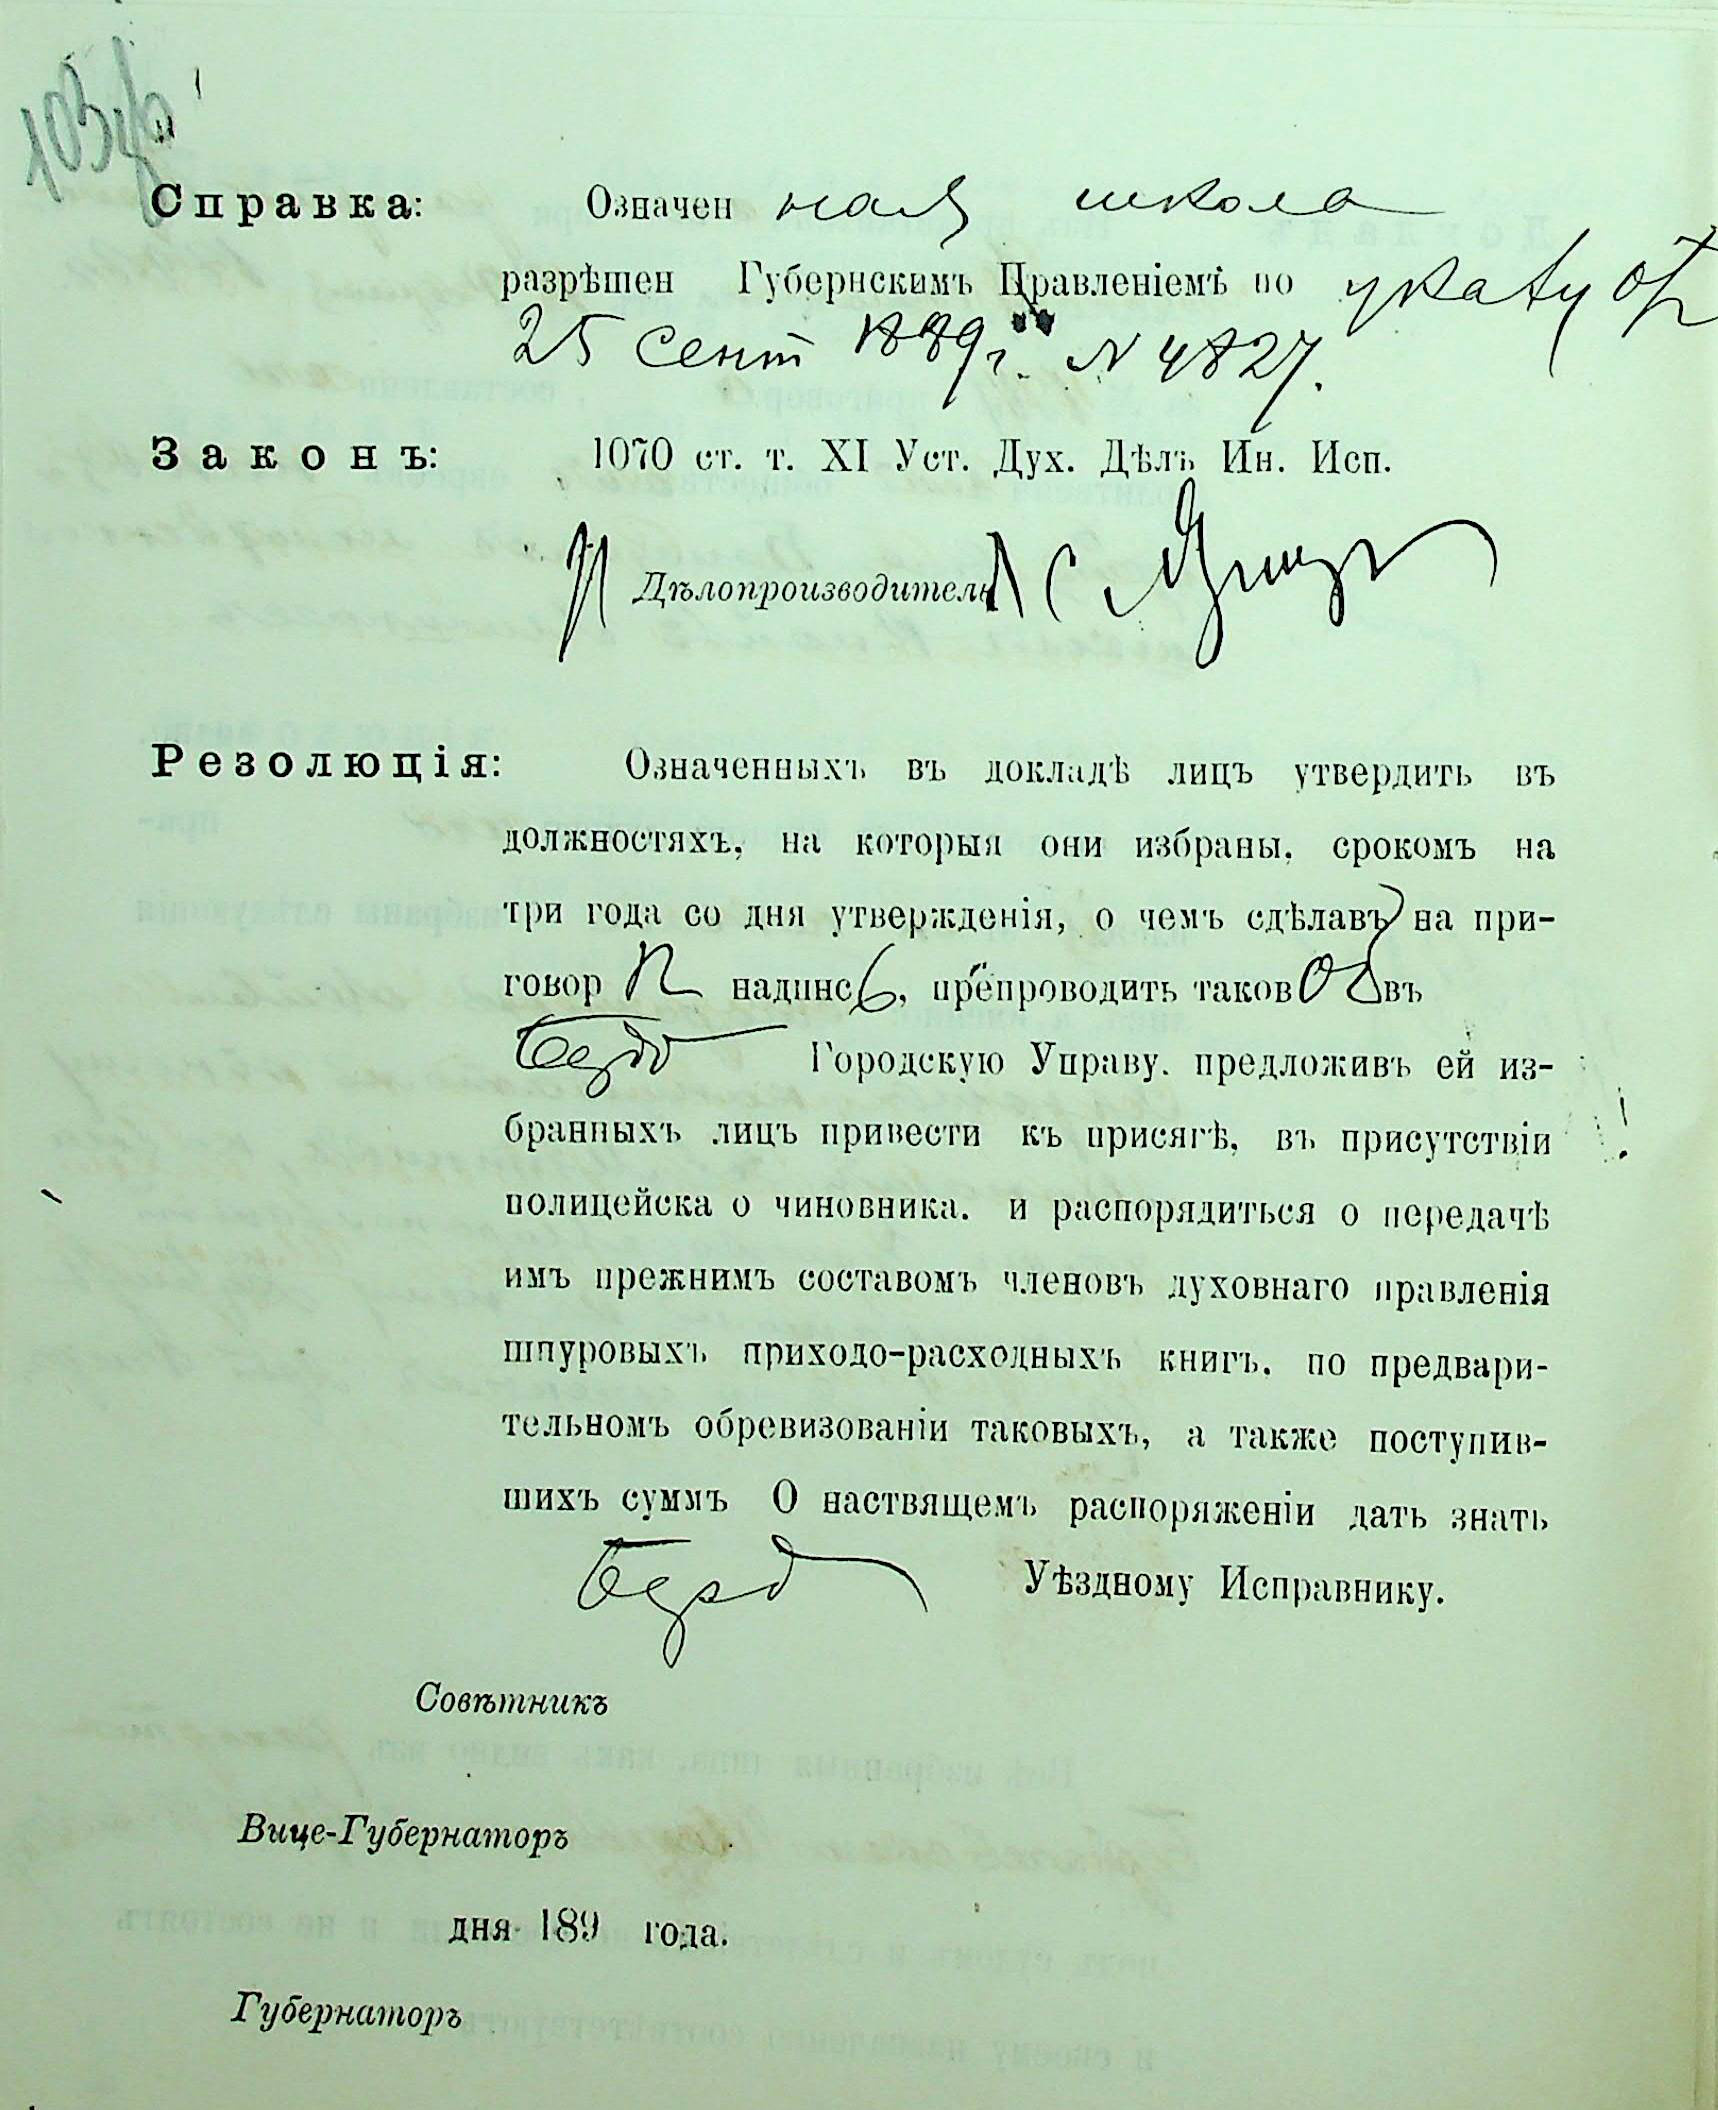 103 об
Справка: Означен ная школа
разрѣшен Губернскимъ Правленіемъ по указу отъ
25 сент 1889 г. N 4827.
Законъ: 1070 ст. т. XI Уст. Дух. Дѣлъ Ин. Исп.
Дѣлопроизводитель
Резолюція: Означенныхъ въ докладѣ лицъ утвердить въ
должностяхъ, на которыя они избраны, срокомъ на
три года со дня утвержденія, о чемъ сдѣлавъ на при-
говор надпис, препроводить таков въ
Берд Городскую Управу. предложивъ ей из-
бранныхъ лицъ привести къ присягѣ, въ присутствіи
полицейска о чиновника. и распорядиться о передачѣ
имъ прежнимъ составомъ членовъ духовнаго правленія
шнуровыхъ приходо-расходныхъ книгъ. по предвари-
тельномъ обревизованіи таковыхъ, а также поступив-
шихъ суммъ О наствящемъ распоряженіи дать знать
Берд Уѣздному Исправнику.
Совѣтникъ
Вице-Губернаторъ
дня 189 года.
Губернаторъ